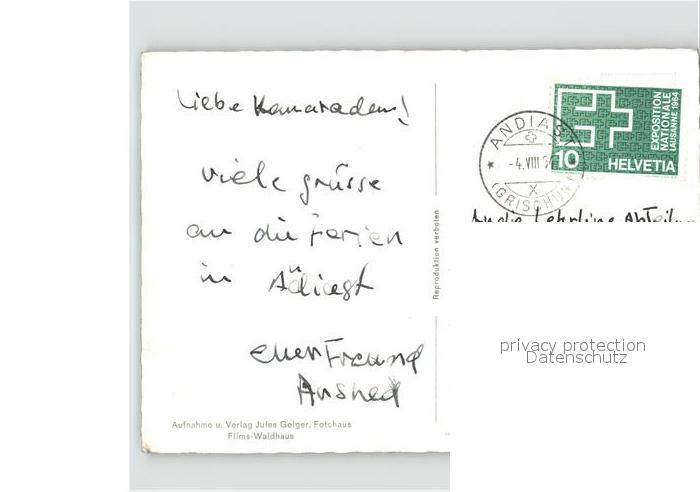 Liebe Kamaraden!
viele grüsse
an die Ferien
in Andiast
euer Freund
Aufnahme u. Verlag Jules Geiger, Fotohaus
Flims-Waldhaus
Reproduktion verboten
ANDIAST
-4.VIII
X
(GRISCHUN)
10
HELVETIA
EXPOSITION
NATIONALE
LAUSANNE 1964
An die Lehrlinge Abteilung
privacy protection
Datenschutz